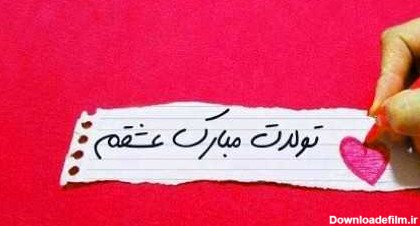 تولدت مبارک عشقم
Downloadefilm.ir